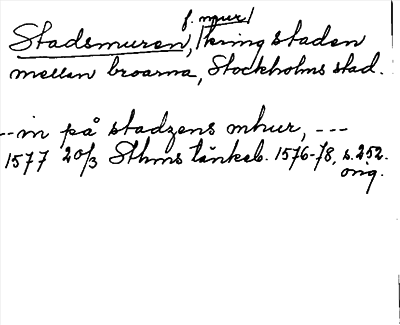 f. mur/
Stadsmuren, /kring staden
mellan broarna, Stockholms stad.
--in på stadzens mhur, ---
1577 20/3 Sthms tänkeb. 1576-78, s. 252.
orig.